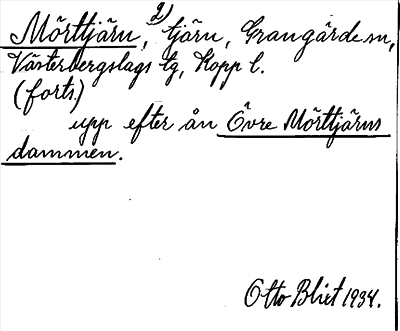 Mörttjärn, 2) tjärn, Grangärde sn,
Västerbergslags tg, Kopp l.
(forts)
upp efter ån Övre Mörttjärns
dammen.
Otto Blixt 1934.